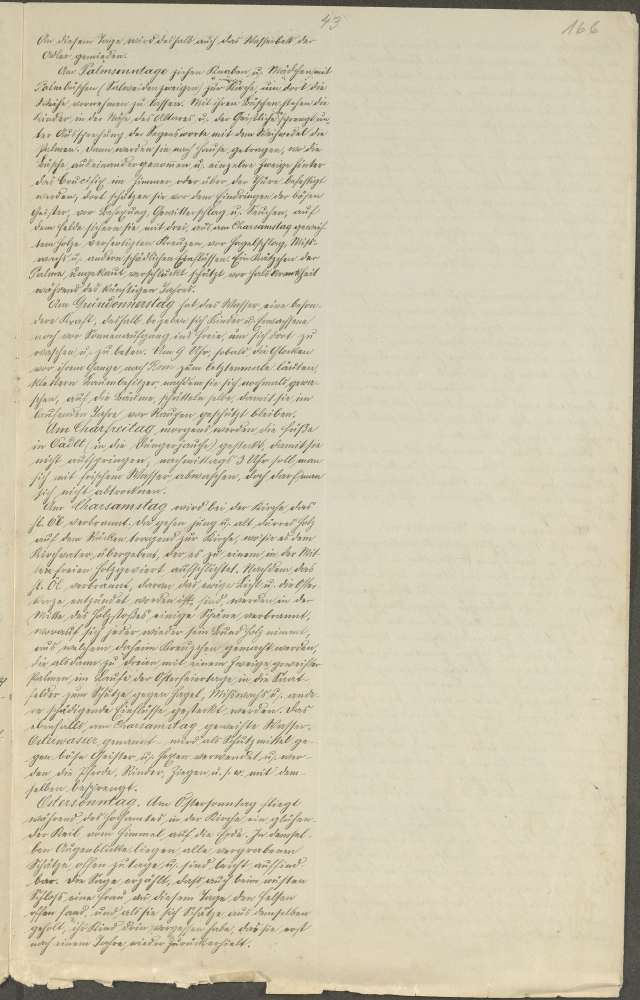 43
166
An diesem Tage wird deshalb auch das Wasserbett der
Adler gemieden.
Am Palmsonntage ziehen Knaben u. Mädchen mit
Palmbüschen (Salweidenzweigen) zur Kirche, um dort die
Weihe vornehmen zu lassen. Mit ihren Büschen stehen die
Kinder in der Nähe des Altares u. der Geistliche sprengt un-
ter Aussprechung der Segensworte mit dem Weihwedel die
Palmen. Dann werden sie nach Hause getragen, wo die
Büsche auseinandergenommen u. einzelne Zweige hinter
das Crucifix im Zimmer, oder über der Thüre befestigt
werden, dort schützen sie vor dem Eindringen der bösen
Geister, vor Gewitterschlag u. Seuchen, auf
dem Felde sichern sie mit drei, aus am Charsamstag geweih-
tem Holze verfertigten Kreuzen vor Hagelschlag, Miß-
wachs u. andern schädlichen Einflüssen. Ein Kätzchen der
Palme, ungekaut verschluckt schützt vor Halskrankheit
während des künftigen Jahres.
Am Gründonnerstag hat das Wasser eine beson-
dere Kraft, deshalb begeben sich Kinder u. Erwachsene
noch vor Sonnenaufgang ins Freie, um sich dort zu
waschen u. zu beten. Um 9 Uhr, sobald die Glocken
vor ihrem Gange nach Rom zum letztenmale läuten,
klettern Baumbesitzer, nachdem sie sich nochmals gewa-
schen, auf die Bäume, schütteln selbe, damit sie im
laufenden Jahre vor Raupen geschützt bleiben.
Am Charfreitag morgens werden die Füße
in Odll (in die Düngerjauche) gesteckt, damit sie
nicht aufspringen, nachmittags 3 Uhr soll man
sich mit frischem Wasser abwaschen, doch darf man
sich nicht abtrocknen.
Am Charsamstag wird bei der Kirche das
hl. Öl verbrannt. Da gehen jung u. alt dürres Holz
auf dem Rücken tragend zur Kirche, wo sie es dem
Kirchvater übergeben, der es zu einem in der Mit-
ten freien Holzgeviert aufschlichtet. Nachdem das
hl. Öl verbrannt, daran das ewige Licht u. die Oster-
kerze entzündet worden ist, werden in der
Mitte des Holzstoßes einige Späne verbrannt,
worauf sich jeder wieder sein Bund Holz nimmt,
aus welchem daheim Kreuzchen gemacht werden,
die alsdann zu dreien mit einem Zweige geweihter
Palmen im Laufe der Osterfeiertage in die Saat-
felder zum Schutze gegen Hagel, Mißwachs u. ande-
re schädigende Einflüsse gesteckt werden. Das
ebenfalls am Charsamstag geweihte Wasser,
Osterwasser genannt – wird als Schutzmittel ge-
gen böse Geister u. Hexen verwendet u. wer-
den die Pferde, Rinder, Ziegen u. s. w. mit dem-
selben besprengt.
Ostersonntag. Am Ostersonntag steigt
während des Hochamtes in der Kirche ein glühen-
der Keil vom Himmel auf die Erde. In demsel-
ben Augenblicke liegen alle vergrabenen
Schätze offen zutage u. sind leicht auffind-
bar. Die Sage erzählt, daß auch beim wüsten
Schloß eine Frau an diesem Tage den Felsen
offen fand, und als sie sich Schätze aus demselben
geholt, ihr Kind drin vergessen habe, das sie erst
nach einem Jahre wieder zurückerhielt.